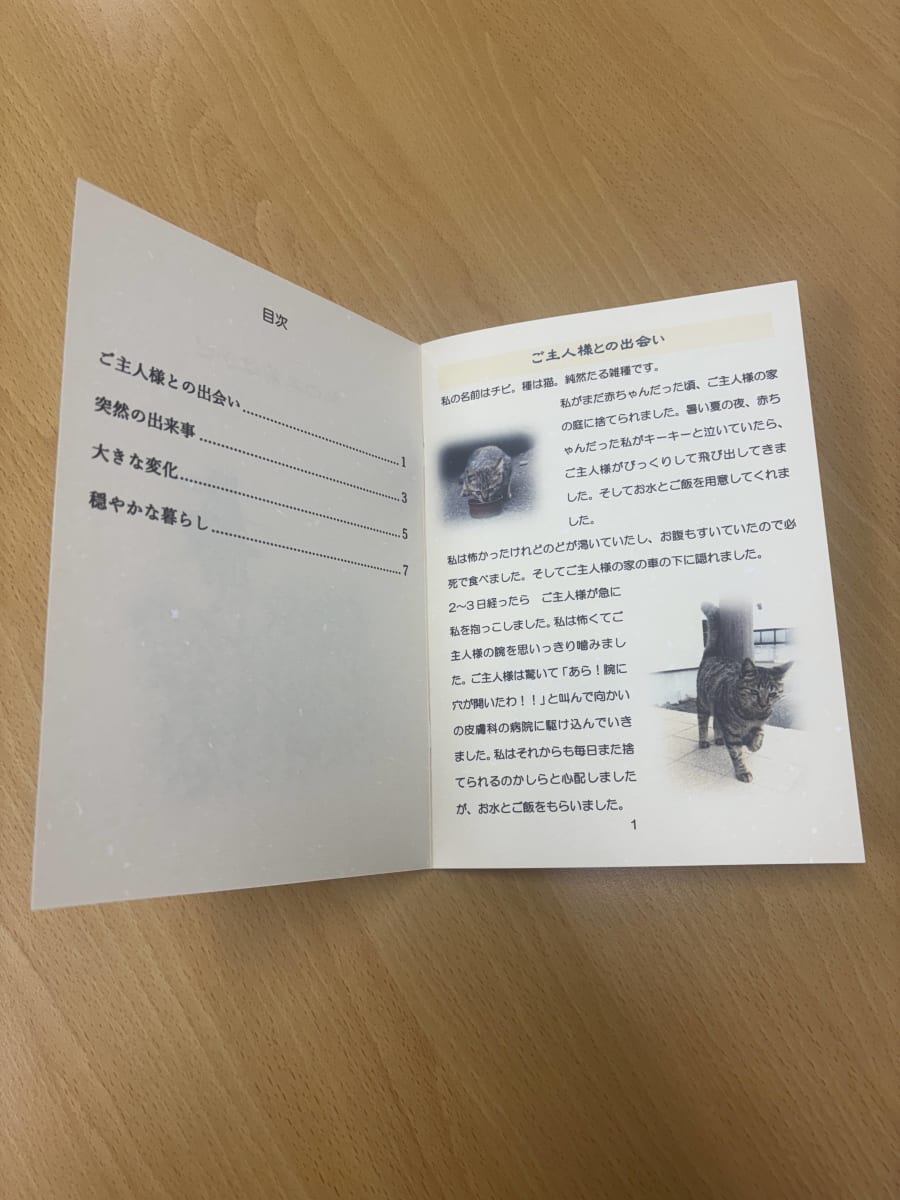 目次
ご主人様との出会い……………………1
突然の出来事……………………3
大きな変化……………………5
穏やかな暮らし……………………7
ご主人様との出会い
私の名前はチビ。種は猫。純然たる雑種です。
私がまだ赤ちゃんだった頃、ご主人様の家
の庭に捨てられました。暑い夏の夜、赤ち
ゃんだった私がキーキーと泣いていたら、
ご主人様がびっくりして飛び出してきま
した。そしてお水とご飯を用意してくれま
した。
私は怖かったけれどのどが渇いていたし、お腹もすいていたので必
死で食べました。そしてご主人様の家の車の下に隠れました。
2〜3日経ったら　ご主人様が急に
私を抱っこしました。私は怖くてご
主人様の腕を思いっきり噛みまし
た。ご主人様は驚いて「あら！腕に
穴が開いたわ！！」と叫んで向かい
の皮膚科の病院に駆け込んでいき
ました。私はそれからも毎日また捨
てられるのかしらと心配しました
が、お水とご飯をもらいました。
1